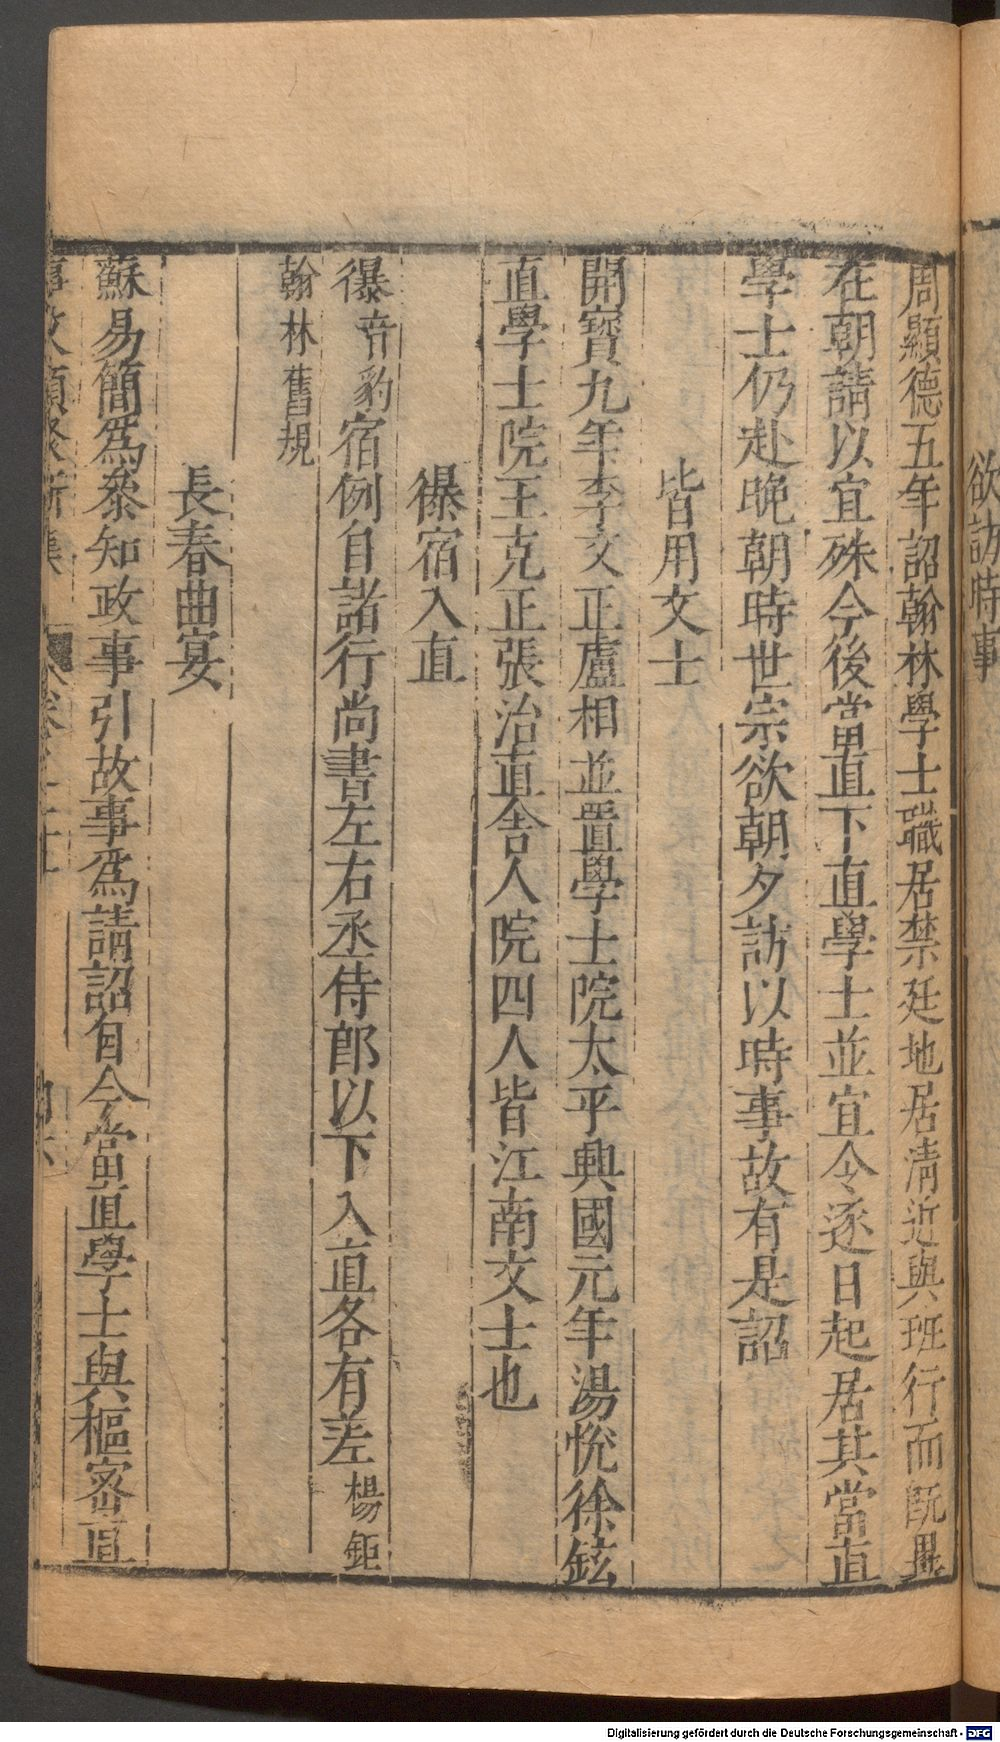 欲訪時事
周顯德五年詔翰林學士職居禁廷地居清近與班行而旣異
在朝請以宜殊今後當直下直學士並宜令逐日起居其當直
學士仍赴晚朝時世宗欲朝夕訪以時事故有是詔
皆用文士
開寳九年李文正盧相並置學士院太平興國元年湯悅徐鉉
直學士院王克正張洎直舎人院四人皆江南文士也
儤宿入直
儤音豹宿例自諸行尚書左右丞侍郎以下入直各有差楊鉅
翰林舊規
長春曲宴
蘇易簡爲叅知政事引故事爲請詔自今當直學士與樞宻直
事文類聚新集 卷之二十
Digitalisierung gefördert durch die Deutsche Forschungsgemeinschaft - DFG